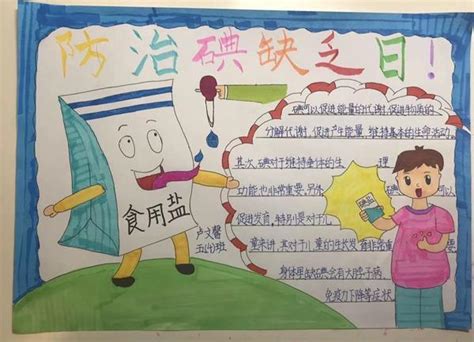 防治碘缺乏日！
碘可以促进能量的代谢，促进物质的
分解代谢，促进产生能量，维持基本的生命活动。
其次，碘对于维持身体的生 理
功能也非常重要，另外 可以
促进发育，特别是对于儿
童来讲，其对于儿童的生长发育非常重 要
身体里缺碘会有大脖子病、
免疫力下降等症状
食用盐
卢文馨
五(4)班
碘盐